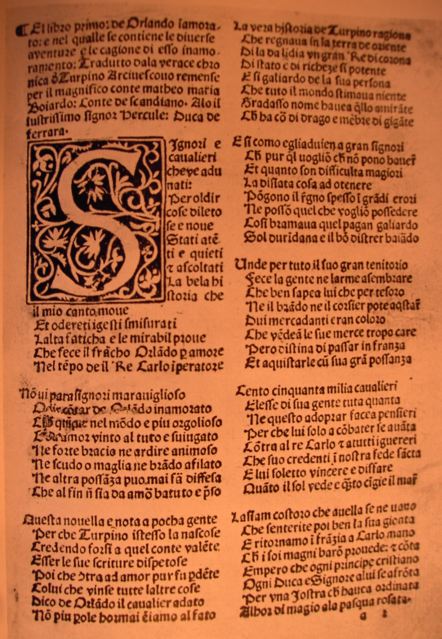 El libro primo: de Orlando inamora-
to: e nel quale se contiene le diuerse
aventure e le cagione di esso inamo-
ramento: Tradutto dala verace chro
nica d Turpino Arciuescouo remense
per il magnifico conte matheo maria
Boiardo: Conte de scandiano. Alo il
lustrissimo signor Hercule: Duca de
ferrara.
SIgnori e
caualieri
che ve adu
nati:
Per oldir
cose dileto
se e noue
Stati atẽ
ti e quieti
τ ascoltati
La bela hi
storia che
il mio canto moue
Et odereti i gesti smisurati
Lalta faticha e le mirabil proue
Che fece il frãcho Orlãdo ꝑ amore
Nel tẽpo de il Re Carlo iꝑeratore
Nõ vi para signori marauiglioso
de Orlãdo inamorato
nel mõdo e piu orgolioso
amor vinto al tuto e suiugato
Ne forte bracio ne ardire animoso
Ne scudo o maglia ne brãdo afilato
Ne altra possãza puo mai far diffesa
Che al fin nõ sia da amor batuto e p̃so
Questa nouella e nota a pocha gente
Per che Turpino istesso la nascose
Credendo forsi a quel conte valẽte
Esser le sue scriture dispetose
Poi che cõtra ad amor pur fu pdẽte
Colui che vinse tutte laltre cose
Dico de Orlãdo il caualier adato
Nõ piu ꝑole hormai veniamo al fato
La vera historia de Turpino ragiona
Che regnaua in la terra de oriente
Di la da lidia vn gran Re di corona
Di stato e di richeze si potente
E si galiardo de la sua persona
Che tuto il mondo stimaua niente
Gradasso nome hauea q̃llo amirãte
Ch ha cor di drago e mẽbre di gigãte
E si como egli aduien a gran signori
Ch pur q̃l uogliõ ch̃ nõ pono hauer
Et quanto son difficulta magiori
La distata cosa ad otenere
Põgono il rẽgno spesso ĩ grãdi erori
Ne possõ quel che vogliõ possedere
Cosi bramaua quel pagan galiardo
Sol durĩdana e il bõ distrer baiãdo
Unde per tuto il suo gran tenitorio
Fece la gente ne larme asembrare
Che ben sapea lui che per tesoro
Ne il brãdo ne il corsier pote aq̃star
Dui mercadanti eran coloro
Che vẽdeã le sue merce tropo care
Pero destina di passar in franza
Et aquistarle cũ sua grã possanza
Cento cinquanta milia caualieri
Elesse di sua gente tuta quanta
Ne questo adoprar facea pensieri
Per che lui solo a cõbater se auãta
Cõtra al re Carlo τ a tuti i guereri
Che suo credenti ĩ nostra fede sãcta
E lui soletto vincere e disfare
Quãto il sol vede e q̃to cigie il mar
Lassam costoro che a uella se ne uano
Che sentirete poi ben la sua gionta
E ritornamo ĩ frãzia a Carlo mano
Ch i soi magni barõ prouede: τ cõta
Empero che ogni principe cristiano
Ogni Duca e Signore a lui se afrõta
Per vna Jostra ch̃ hauea ordinata
Alhor di magio ala pasqua rosata.
a 2